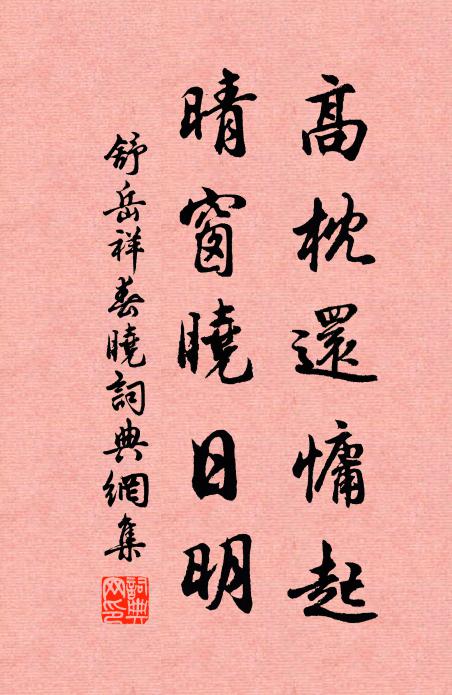 高枕還慵起
晴窗曉日明
舒岳祥春曉詞典網集
詞典網印